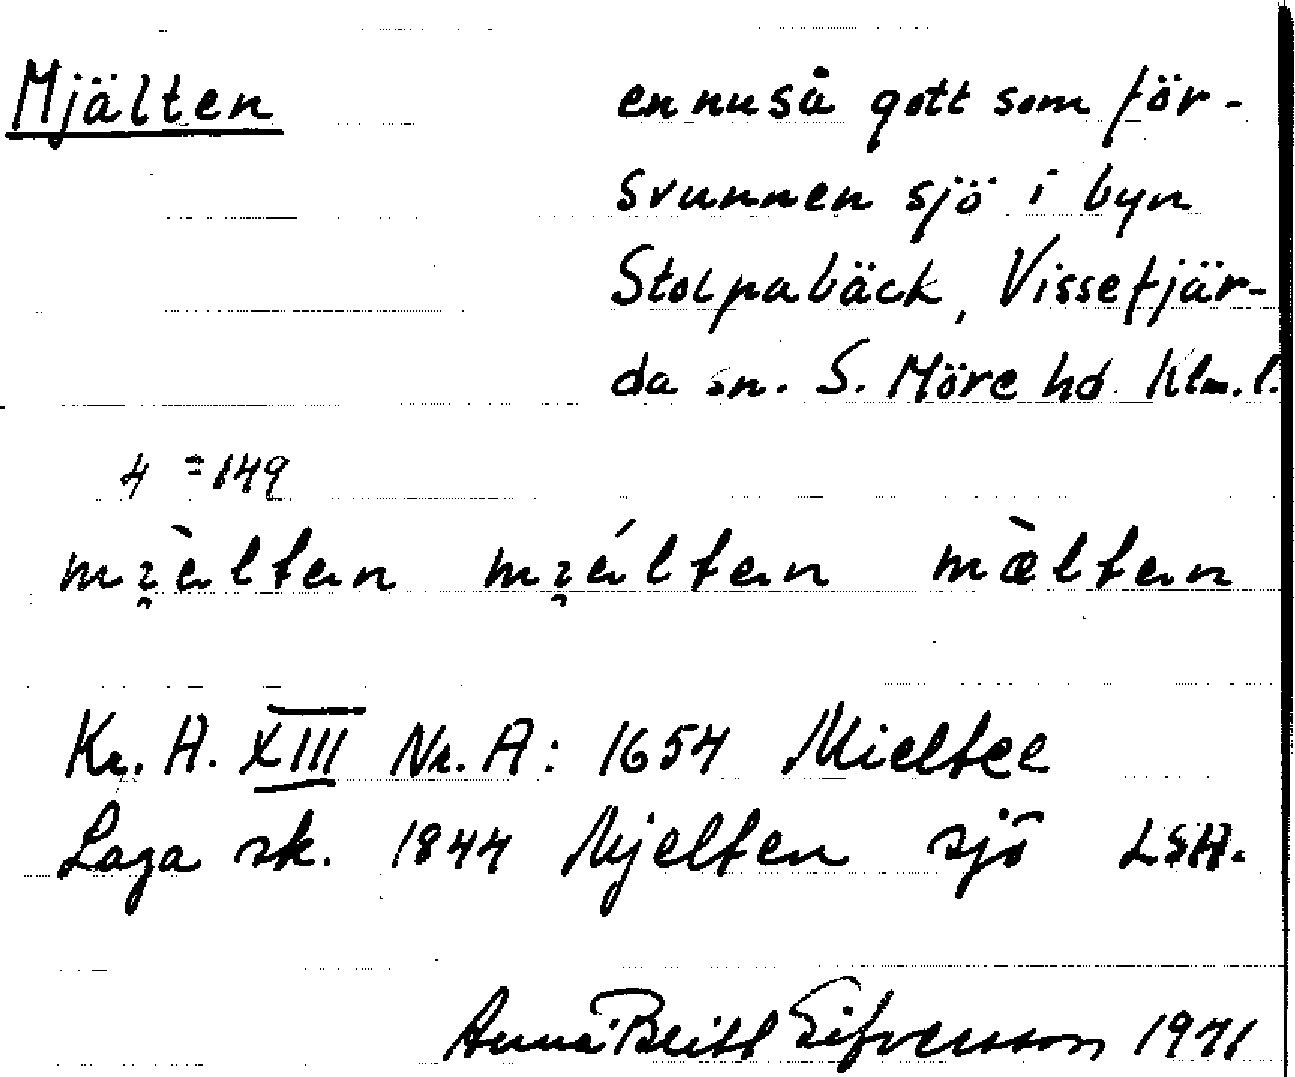 Mjälten en nu så gott som för-
svunnen sjö i byn
Stolpabäck, Vissefjär-
da sn. S. Möre hd. Klm. l.
4 = 149
mjèltan mjéltan mæ̀ltan
Kr. A. XIII Nr. A: 1654 Mieltee
Laga sk. 1844 Mjelten sjö LSA.
Anna Britt Sifvensson 1971